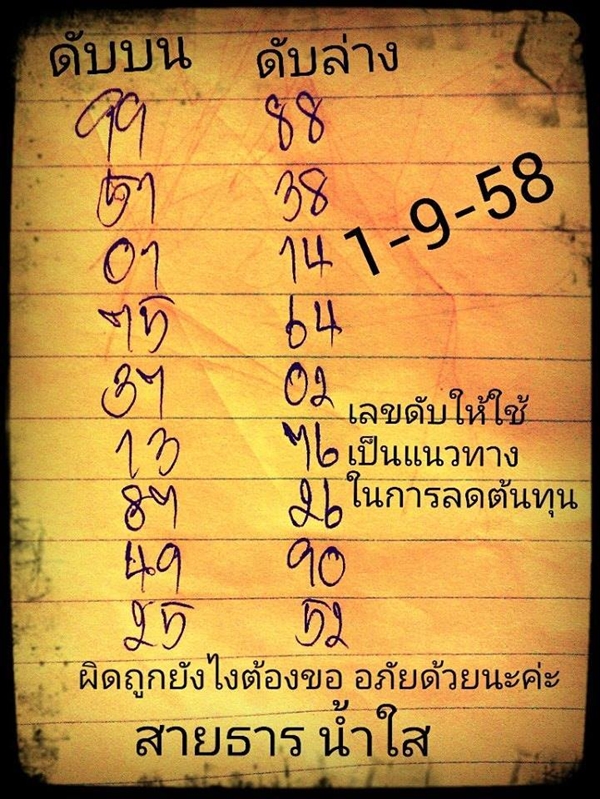 ดับบน ดับล่าง
99 88
57 38
07 14
1-9-58
75 64
37 02
เลขดับให้ใช้
13 76
เป็นแนวทาง
87 26
ในการลดต้นทุน
49 90
25 52
ผิดถูกยังไงต้องขอ อภัยด้วยนะค่ะ
สายธาร น้ำใส